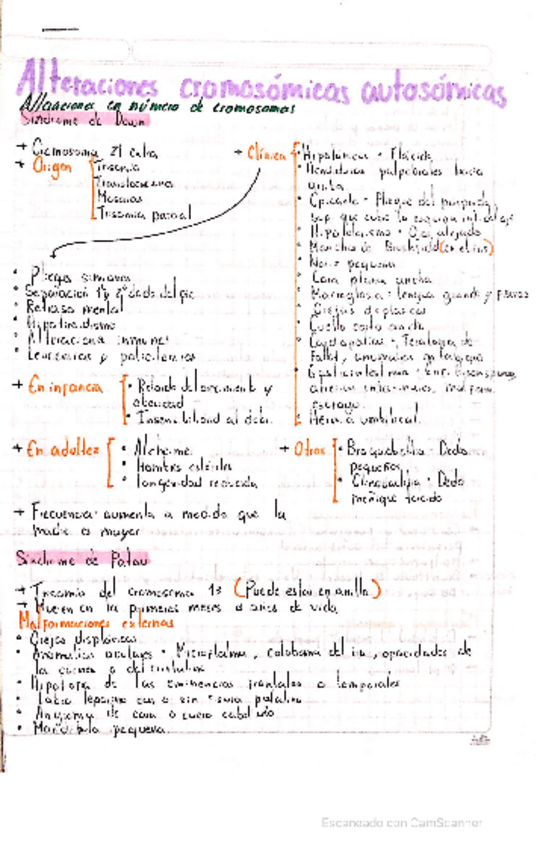 Alteraciones cromosómicas autosómicas
Alteraciones en número de cromosomas
Síndrome de Down
→ Cromosoma 21 extra
→ Origen
Trisomía
Translocaciones
Mosaico
Trisomía parcial
→ Clínica
• Hipotónicos - Flácido
• Hendiduras palpebrales hacia
arriba
• Epicanto - Pliegue del
que cubre la esquina
• Hipotelorismo - Ojo alejado
• Manchas de Brushfield (en el iris)
• Nariz pequeña
• Cara plana ancha
• Macroglosia: lengua grande y
• Orejas displásicas
• Cuello corto ancho
• Cardiopatías - Tetralogía de
Fallot,
• Gastrointestinal
esófago
• Hernia umbilical
• Pliegue simiano
• Separación 1º y 2º dedo del pie
• Retraso mental
• Hipotiroidismo
• Alteraciones inmunes
• Leucemias y policitemias
→ En infancia
• Retardo del crecimiento y
obesidad
• Insensibilidad al dolor
→ En adultez
• Alzheimer
• Hombre estéril
• Longevidad reducida
→ Otros
• Braquidactilia - Dedos
pequeños
• Clinodactilia - Dedo
meñique torcido
→ Frecuencia: aumenta a medida que la
madre es mayor
Síndrome de Patau
→ Trisomía del cromosoma 13 (Puede estar en anillo)
→ Mueren en los primeros meses o años de vida
Malformaciones externas
• Orejas displásicas
• Anomalías oculares - Microftalmia, coloboma del iris, opacidades de
la córnea o del cristalino
• de las eminencias frontales o temporales
• Labio leporino con o sin fisura palatina
• Angioma de cara o cuero cabelludo
• Mandíbula pequeña
Escaneado con CamScanner